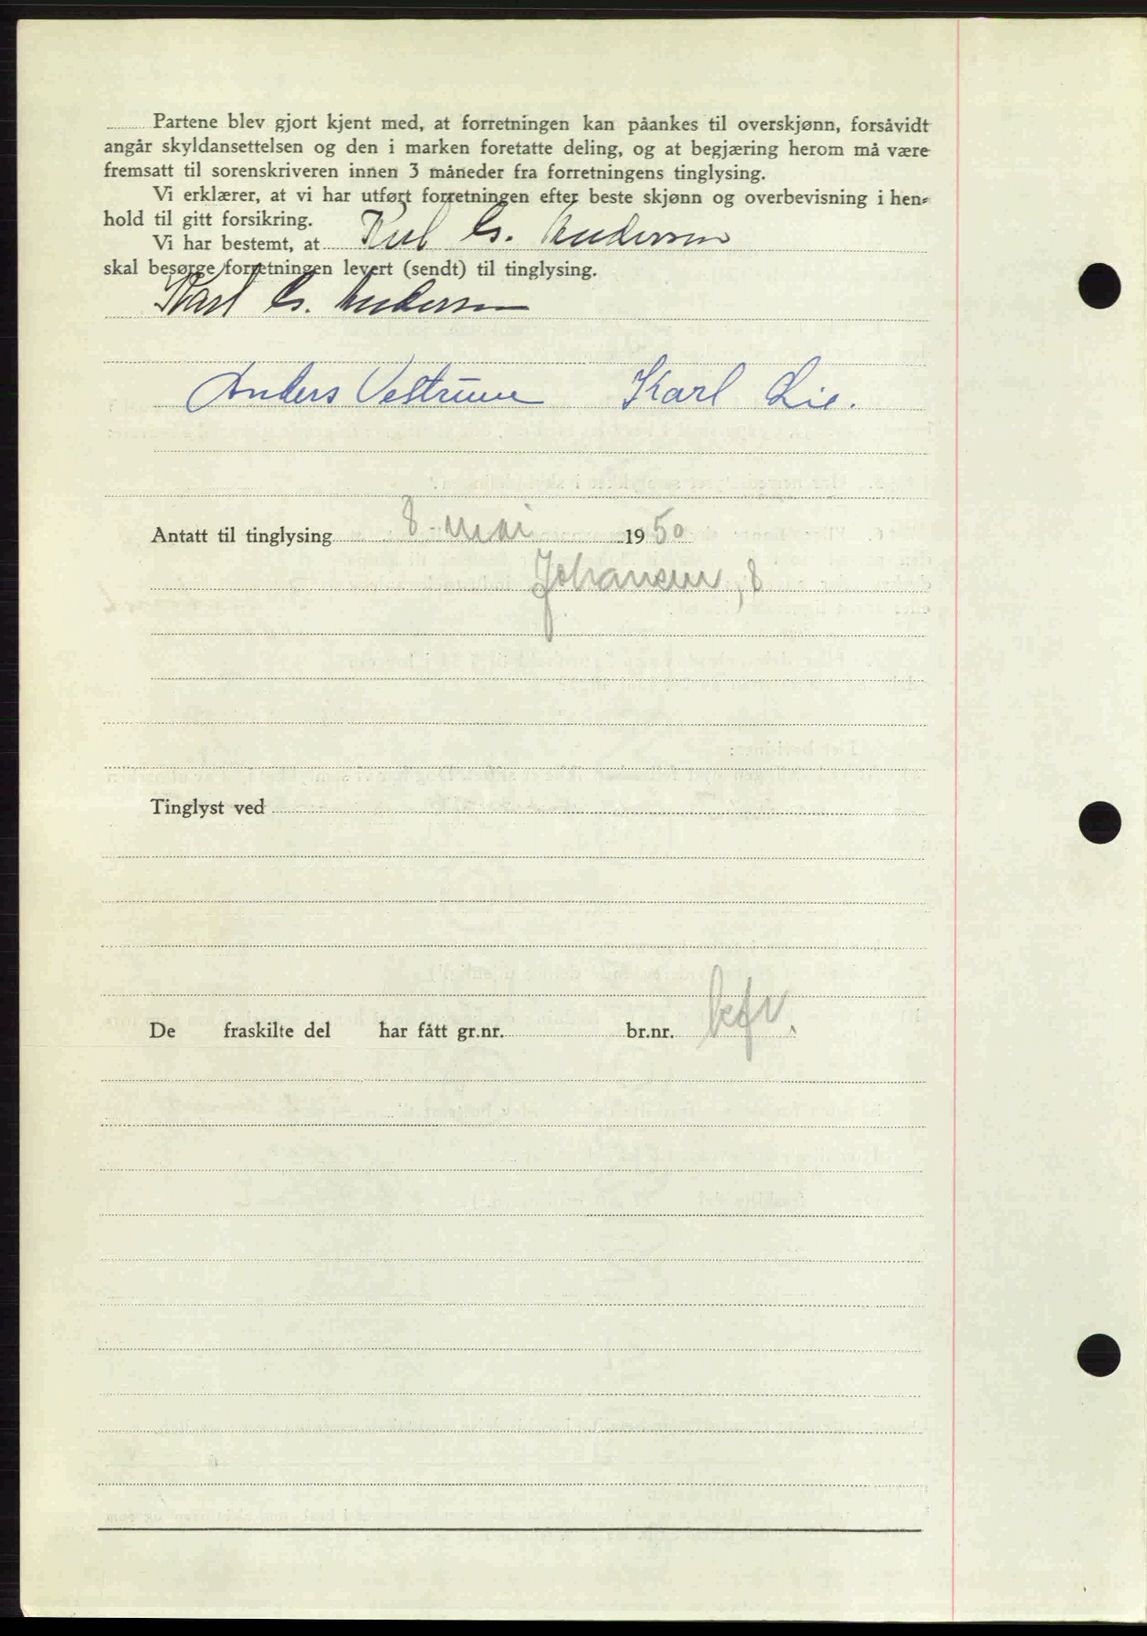 Partene blev gjort kjent med, at forretningen kan påankes til overskjønn, forsåvidt
angår skyldansettelsen og den i marken foretatte deling, og at begjæring herom må være
fremsatt til sorenskriveren innen 3 måneder fra forretningens tinglysing.
Vi erklærer, at vi har utført forretningen efter beste skjønn og overbevisning i hen-
hold til gitt forsikring.
Vi har bestemt, at Karl G. Andersen
skal besørge forretningen levert (sendt) til tinglysing.
Karl G. Andersen
Anders Vestrum Karl Lie.
Antatt til tinglysing 8 mai 1950
Johansen,
Tinglyst ved
De fraskilte del har fått gr.nr. br.nr.